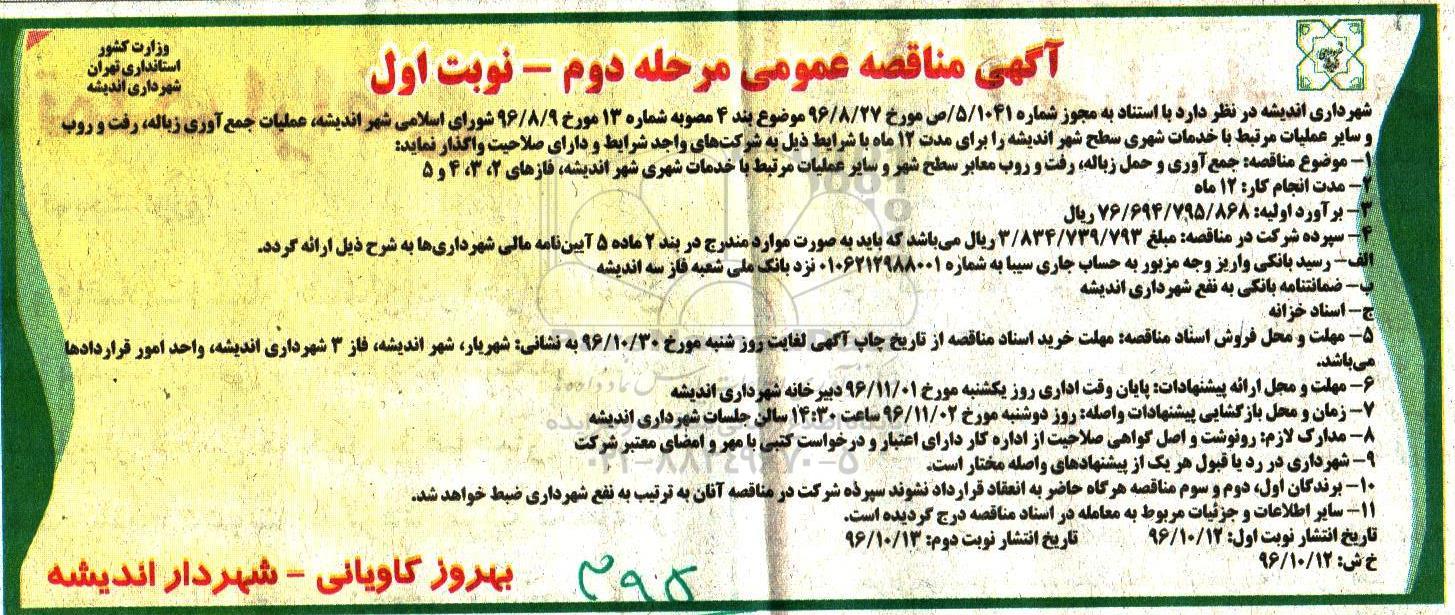 وزارت کشور
استانداری تهران
شهرداری اندیشه
آگهی مناقصه عمومی مرحله دوم – نوبت اول
شهرداری اندیشه در نظر دارد با استناد به مجوز شماره ۵/۱۰۴۱/ص مورخ ۹۶/۸/۲۷ موضوع بند ۴ مصوبه شماره ۱۳ مورخ ۹۶/۸/۹ شورای اسلامی شهر اندیشه، عملیات جمع‌آوری زباله، رفت و روب
و سایر عملیات مرتبط با خدمات شهری سطح شهر اندیشه را برای مدت ۱۲ ماه با شرایط ذیل به شرکت‌های واجد شرایط و دارای صلاحیت واگذار نماید:
۱– موضوع مناقصه: جمع‌آوری و حمل زباله، رفت و روب معابر سطح شهر و سایر عملیات مرتبط با خدمات شهری شهر اندیشه، فازهای ۲، ۳، ۴ و ۵
۲– مدت انجام کار: ۱۲ ماه
۳– برآورد اولیه: ۷۶/۶۹۴/۷۹۵/۸۶۸ ریال
۴– سپرده شرکت در مناقصه: مبلغ ۳/۸۳۴/۷۳۹/۷۹۳ ریال می‌باشد که باید به صورت موارد مندرج در بند ۲ ماده ۵ آیین‌نامه مالی شهرداری‌ها به شرح ذیل ارائه گردد.
الف– رسید بانکی واریز وجه مزبور به حساب جاری سیبا به شماره ۰۱۰۶۲۱۲۹۸۸۰۰۱ نزد بانک ملی شعبه فاز سه اندیشه
ب– ضمانتنامه بانکی به نفع شهرداری اندیشه
ج– اسناد خزانه
۵– مهلت و محل فروش اسناد مناقصه: مهلت خرید اسناد مناقصه از تاریخ چاپ آگهی لغایت روز شنبه مورخ ۹۶/۱۰/۳۰ به نشانی: شهریار، شهر اندیشه، فاز ۳ شهرداری اندیشه، واحد امور قراردادها
می‌باشد.
۶– مهلت و محل ارائه پیشنهادات: پایان وقت اداری روز یکشنبه مورخ ۹۶/۱۱/۰۱ دبیرخانه شهرداری اندیشه
۷– زمان و محل بازگشایی پیشنهادات واصله: روز دوشنبه مورخ ۹۶/۱۱/۰۲ ساعت ۱۴:۳۰ سالن جلسات شهرداری اندیشه
۸– مدارک لازم: رونوشت و اصل گواهی صلاحیت از اداره کار دارای اعتبار و درخواست کتبی با مهر و امضای معتبر شرکت
۹– شهرداری در رد یا قبول هر یک از پیشنهادهای واصله مختار است.
۱۰– برندگان اول، دوم و سوم مناقصه هرگاه حاضر به انعقاد قرارداد نشوند سپرده شرکت در مناقصه آنان به ترتیب به نفع شهرداری ضبط خواهد شد.
۱۱– سایر اطلاعات و جزئیات مربوط به معامله در اسناد مناقصه درج گردیده است.
تاریخ انتشار نوبت اول: ۹۶/۱۰/۱۲ تاریخ انتشار نوبت دوم: ۹۶/۱۰/۱۳
خ ش: ۹۶/۱۰/۱۲
بهروز کاویانی – شهردار اندیشه